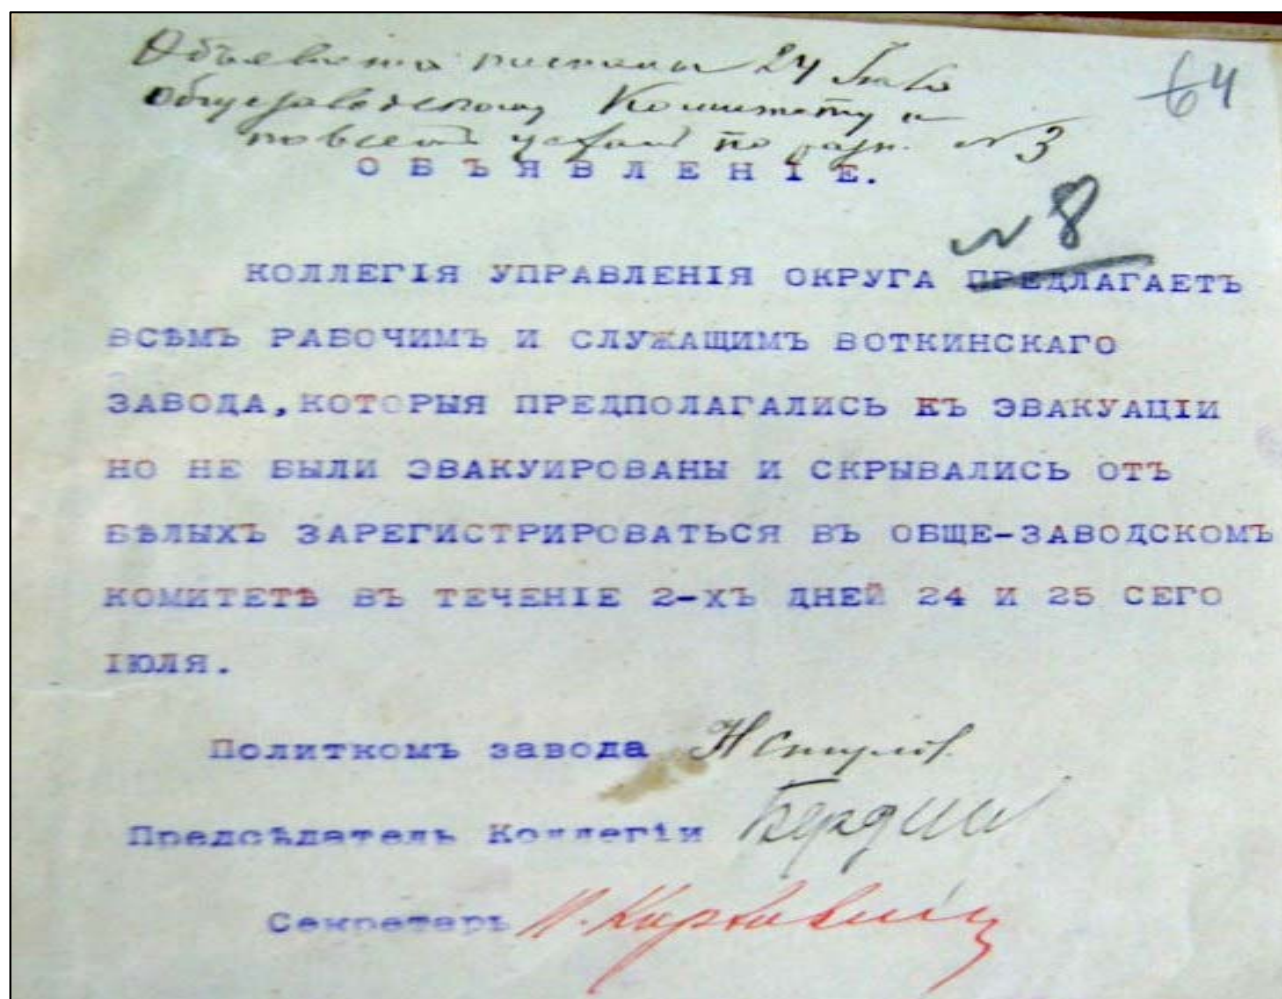 Объявления посланы 24 Июля
64
Общезаводскому Комитету и
по всем цехам по разн. №3
ОБЪЯВЛЕНІЕ.
№8
КОЛЛЕГІЯ УПРАВЛЕНІЯ ОКРУГА ПРЕДЛАГАЕТЪ
ВСѢМЪ РАБОЧИМЪ И СЛУЖАЩИМЪ ВОТКИНСКАГО
ЗАВОДА,КОТОРЫЯ ПРЕДПОЛАГАЛИСЬ КЪ ЭВАКУАЦІИ
НО НЕ БЫЛИ ЭВАКУИРОВАНЫ И СКРЫВАЛИСЬ ОТЪ
БѢЛЫХЪ ЗАРЕГИСТРИРОВАТЬСЯ ВЪ ОБЩЕ-ЗАВОДСКОМЪ
КОМИТЕТѢ ВЪ ТЕЧЕНІЕ 2-ХЪ ДНЕЙ 24 И 25 СЕГО
ІЮЛЯ.
Политкомъ завода Н Стулов
Предсѣдатель Коллегіи Бердши
Секретарь